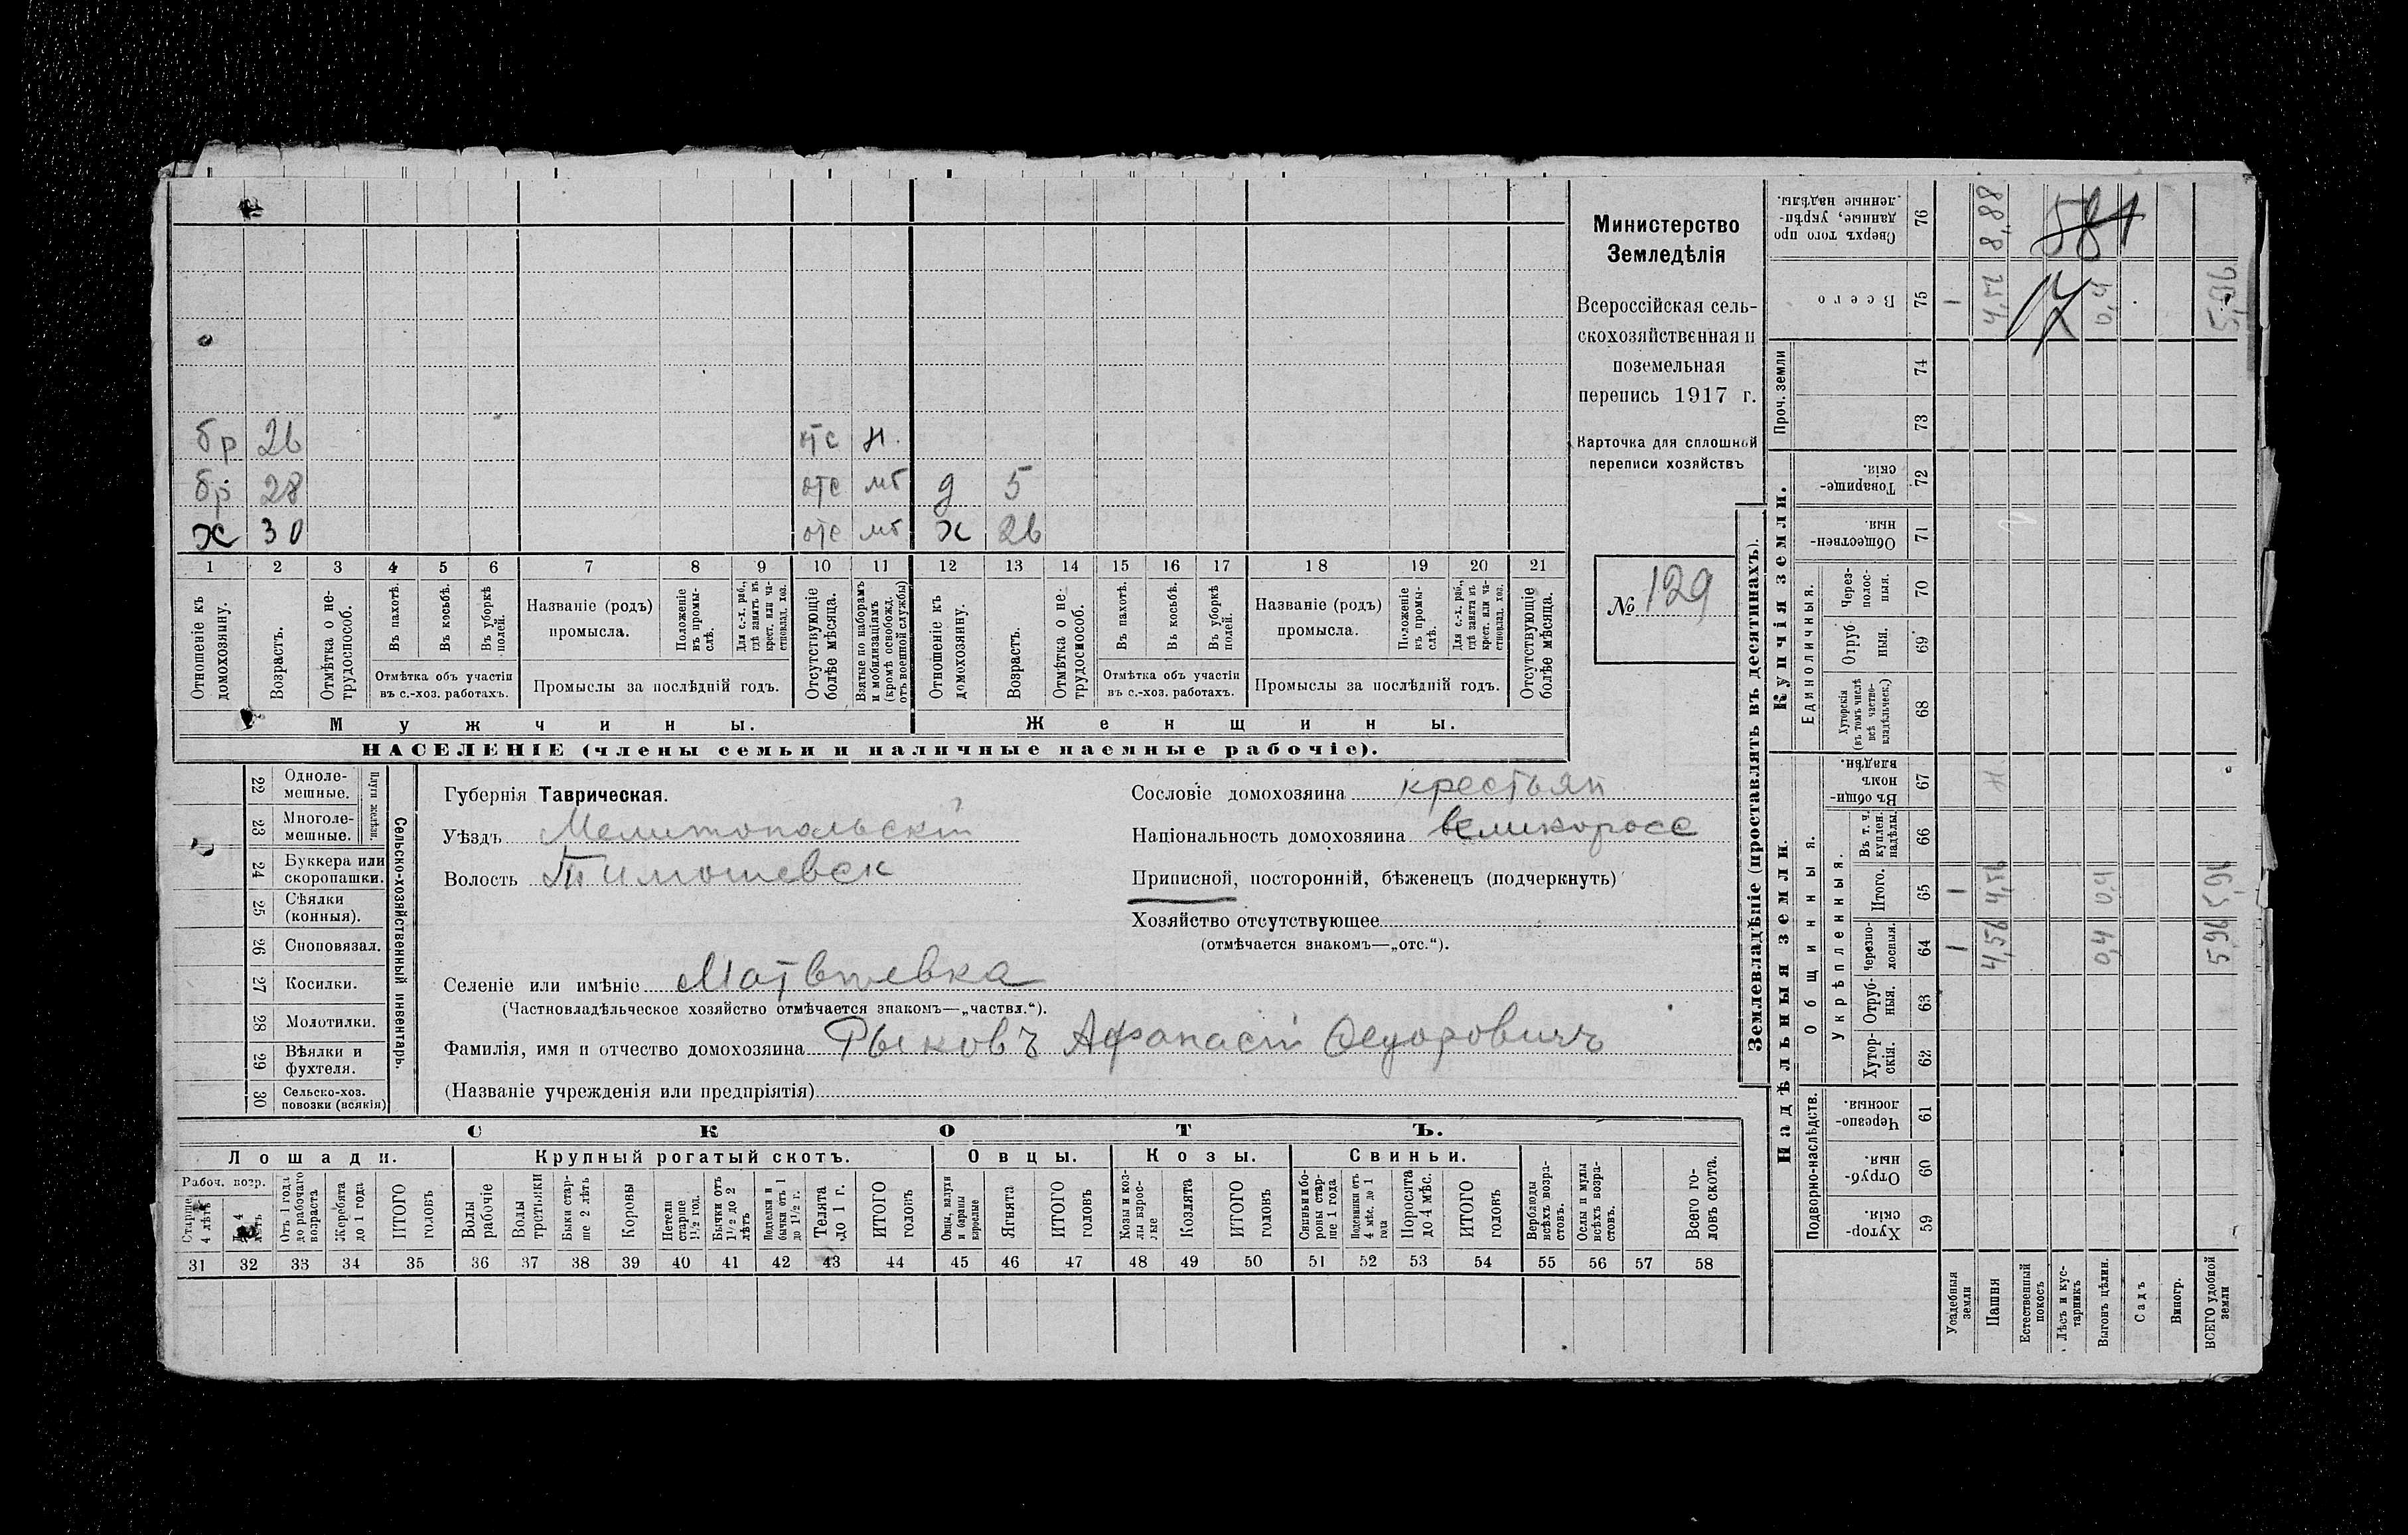 бр 26 отс н.
бр 28 отс мб д 5
х 30 отс мб х 26
1 2 3 4 5 6 7 8 9 10 11 12 13 14 15 16 17 18 19 20 21
Отношеніе къ домохозяину.
Возрастъ.
Отмѣтка о не-
трудоспособ.
Въ пахотѣ.
Въ косьбѣ.
Въ уборкѣ полей.
Отмѣтка объ участіи
въ с.-хоз. работахъ.
Названіе (родъ)
промысла.
Положеніе
въ промы-
слѣ.
Для с.-х. раб.,
гдѣ занятъ въ
крест. или ча-
стновлад. хоз.
Промыслы за послѣдній годъ.
Отсутствующіе
болѣе мѣсяца.
Взятые по наборамъ
и мобилизаціямъ
(кромѣ освобожд.
отъ военной службы)
Отношеніе къ
домохозяину.
Возрастъ.
Отмѣтка о не-
трудоспособ.
Въ пахотѣ.
Въ косьбѣ.
Въ уборкѣ
полей.
Отмѣтка объ участіи
въ с.-хоз. работахъ.
Названіе (родъ)
промысла.
Положеніе
въ промы-
слѣ.
Для с.-х. раб.,
гдѣ занята въ
крест. или ча-
стновлад. хоз.
Промыслы за послѣдній годъ.
Отсутствующіе
болѣе мѣсяца.
Мужчины.
Женщины.
НАСЕЛЕНІЕ (члены семьи и наличные наемные рабочіе).
Министерство
Земледѣлія
Всероссійская сель-
скохозяйственная и
поземельная
перепись 1917 г.
Карточка для сплошной
переписи хозяйствъ
№ 129
22 Одноле-
мешные.
23 Многоле-
мешные.
Плуги желѣзн.
24 Буккера или
скоропашки.
25 Сѣялки
(конныя).
26 Сноповязал.
27 Косилки.
28 Молотилки.
29 Вѣялки и
фухтеля.
30 Сельско-хоз.
повозки (всякія)
Сельско-хозяйственный инвентарь.
Губернія Таврическая.
Уѣздъ Мелитопольскій
Волость Тимошевск
Селеніе или имѣніе Матвѣевка
(Частновладѣльческое хозяйство отмѣчается знакомъ—„частвл.“).
Фамилія, имя и отчество домохозяина Рыковъ Афанасій Федоровичъ
(Названіе учрежденія или предпріятія)
Сословіе домохозяина крестьян
Національность домохозяина великоросс
Приписной, посторонній, бѣженецъ (подчеркнуть)
Хозяйство отсутствующее
(отмѣчается знакомъ—„отс.“).
СКОТЪ.
Лошади. Крупный рогатый скотъ. Овцы. Козы. Свиньи.
Рабоч. возр.
Старше
4 лѣтъ
До 4
лѣтъ
Отъ 1 года
до рабочаго
возраста
Жеребята
до 1 года
ИТОГО
головъ
Волы
рабочіе
Волы
третьяки
Быки стар-
ше 2 лѣтъ
Коровы
Нетели
старше
1½ год.
Бычки отъ
1½ до 2
лѣтъ
Подтелки и
бычки отъ 1
до 1½ г.
Телята
до 1 г.
ИТОГО
головъ
Овцы, валухи
и бараны
взрослые
Ягнята
ИТОГО
головъ
Козы и коз-
лы взрос-
лые
Козлята
ИТОГО
головъ
Свиньи и бо-
ровы стар-
ше 1 года
Подсвинки отъ
4 мѣс. до 1
года
Поросята
до 4 мѣс.
ИТОГО
головъ
Верблюды
всѣхъ возра-
стовъ.
Ослы и мулы
всѣхъ возра-
стовъ.
Всего го-
ловъ скота.
31 32 33 34 35 36 37 38 39 40 41 42 43 44 45 46 47 48 49 50 51 52 53 54 55 56 57 58
Землевладѣніе (проставлять въ десятинахъ).
Купчія земли.
Надѣльныя земли.
Сверхъ того про-
данные, укрѣп-
ленные надѣлы.
76 8,88 581
Всего
75 1 4,56 0,4 5,96
Проч. земли
74
73
Товарище-
скія.
72
Обществен-
ныя.
71
Единоличныя.
Черес-
полос-
ныя.
70
Отруб
ныя.
69
Хуторскія
(въ томъ числѣ
всѣ частно-
владѣльческ.)
68
Общинныя.
Въ общи-
номъ
владѣн.
67 н
Укрѣпленныя.
Въ т. ч.
куплен.
надѣлы.
66
Итого.
65 1 4,56 0,4 5,96
Черезпо-
лосныя.
64 1 4,56 0,4 5,96
Отруб-
ныя.
63
Хутор-
скія.
62
Подворно-наслѣдств.
Черезпо-
лосныя.
61
Отруб-
ныя.
60
Хутор-
скія.
59
Усадебныя
земли
Пашня
Естественный
покосъ
Лѣсъ и кус-
тарникъ
Выгонъ цѣлин.
Садъ
Виногр.
ВСЕГО удобной
земли